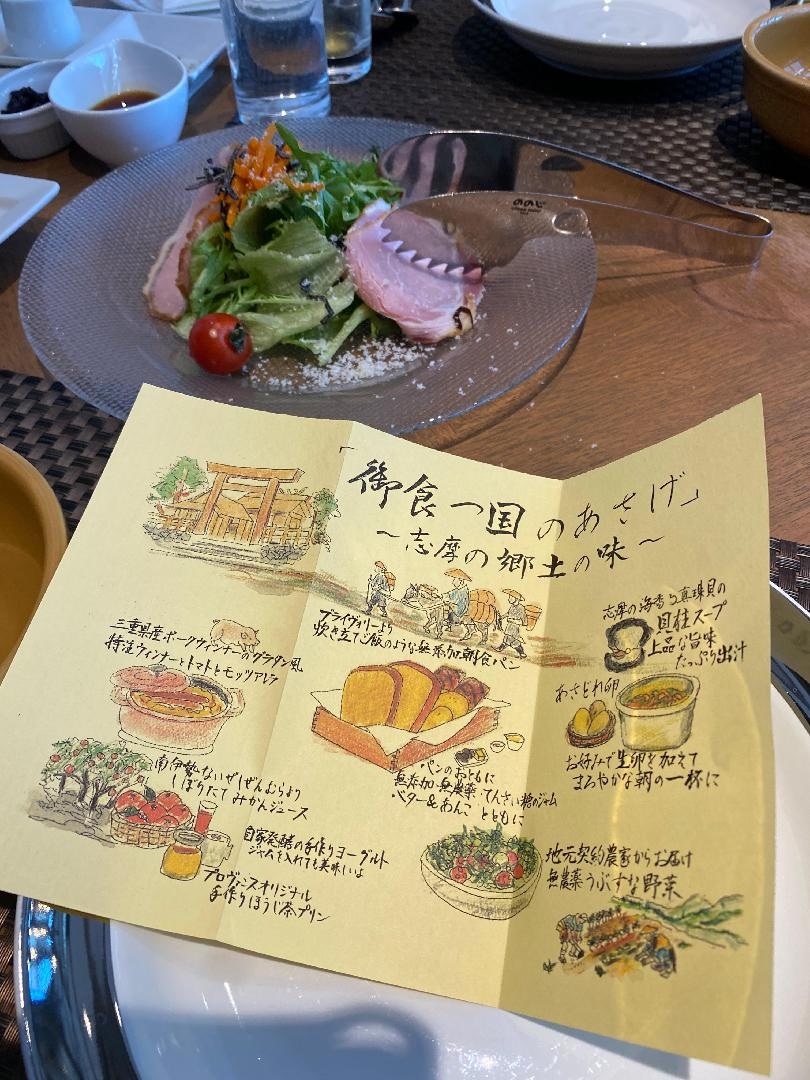 ののじ
「御食つ国のあさげ」
～志摩の郷土の味～
三重県産ポークウィンナーのグラタン風
特注ウィンナーとトマトとモッツアレラ
プライヴァリーより
炊き立てご飯のような無添加朝食パン
志摩の海香る真珠貝の
貝柱スープ
上品な旨味
たっぷり出汁
あさどれ卵
お好みで生卵を加えて
まろやかな朝の一杯に
南伊勢ないぜしぜんむらより
しぼりたて みかんジュース
パンのおともに
無添加・無農薬・てんさい糖のジャム
バター＆あんこ とともに
自家発酵の手作りヨーグルト
ジャムを入れても美味しいよ
プロヴァンスオリジナル
手作りほうじ茶プリン
地元契約農家からお届け
無農薬うぶすな野菜